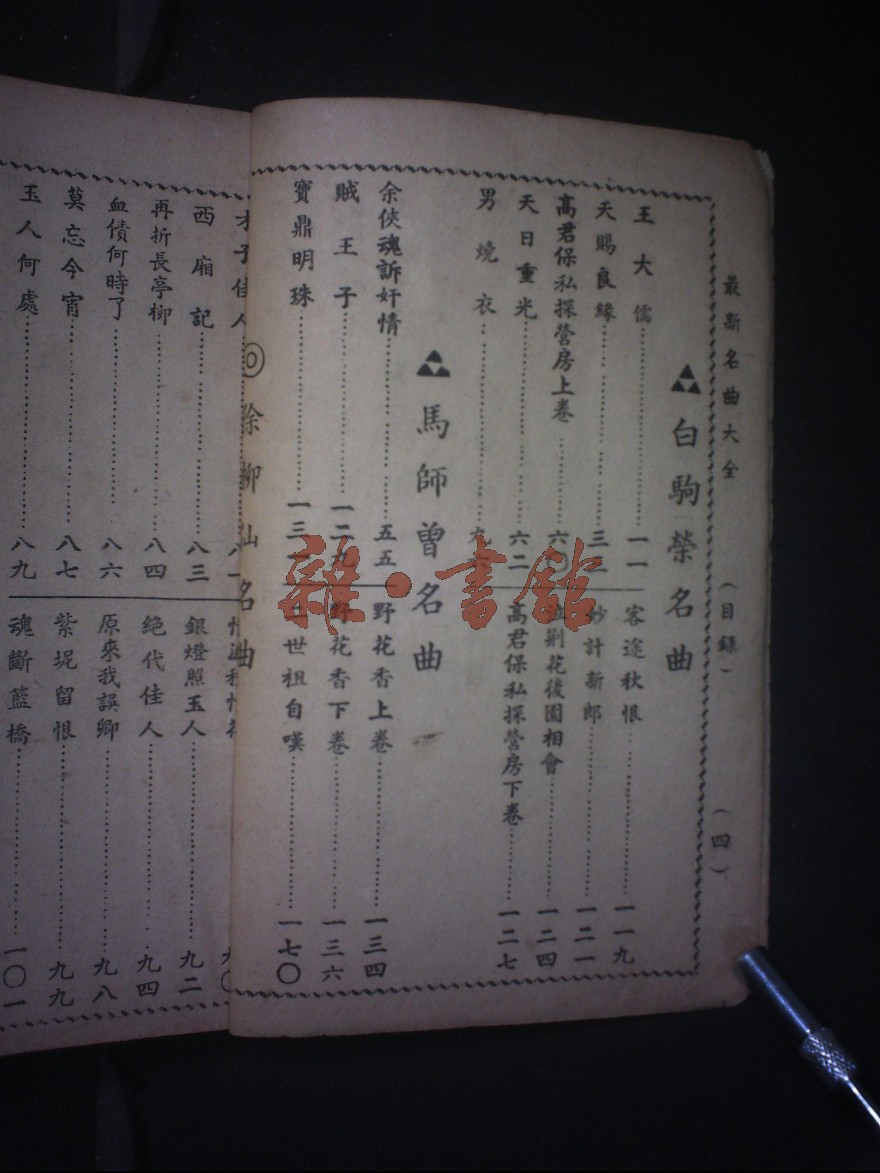 最新名曲大全 （目錄） （四）
白駒榮名曲
王大儒 一一
天賜良緣 三
高君保私探營房上卷 六〇
天日重光 六二
男燒衣 九
客途秋恨 一一九
妙計新郎 一二一
荊花後園相會 一二四
高君保私探營房下卷 一二七
馬師曾名曲
余俠魂訴奸情 五五
賊王子 一二九
寶鼎明珠 一三
野花香上卷 一三四
野花香下卷 一三六
世祖自嘆 一七〇
徐柳仙名曲
才子佳人 八一
西廂記 八三
再折長亭柳 八四
血債何時了 八六
莫忘今宵 八七
玉人何處 八九
九〇
銀燈照玉人 九二
絕代佳人 九四
原來我誤卿 九八
紫坭留恨 九九
魂斷籃橋 一〇一
雜·書館